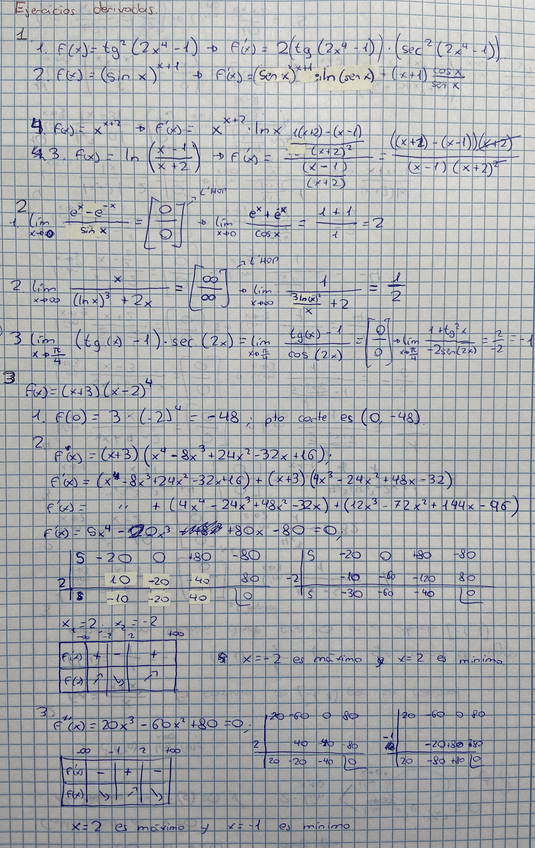 Ejercicios derivadas.
1
1. f(x) = tg² (2x⁴ - 1) → f'(x) = 2(tg (2x⁴ - 1)) · (sec² (2x⁴ - 1)).
2. f(x) = (sin x)^(x+1) → f'(x) = (sen x)^(x+1) · ln (sen x) + (x+1) cosx/senx
4. f(x) = x^(x+2) → f'(x) = x^(x+2) · ln x
3. f(x) = ln ((x-1)/(x+2)) → f'(x) = ((1(x+2) - (x-1))/(x+2)²)/((x-1)/(x+2)) = ((x+2) - (x-1))(x+2)/((x-1)(x+2)²)
2
1 lim x→0 (eˣ - e⁻ˣ)/sin x = [0/0] L'HOP → lim x→0 (eˣ + e⁻ˣ)/cosx = (1+1)/1 = 2
2 lim x→∞ x/((ln x)³ + 2x) = [∞/∞] L'HOP → lim x→∞ 1/(3ln(x)²/x + 2) = 1/2
3 lim x→π/4 (tg(x) - 1) · sec (2x) = lim x→π/4 (tg(x) - 1)/cos (2x) = [0/0] → lim x→π/4 (1 + tg²x)/(-2sen(2x)) = 2/-2 = -1
3
f(x) = (x+3)(x-2)⁴
1. f(0) = 3 · (-2)⁴ = -48; pto corte es (0, -48)
2.
f(x) = (x+3)(x⁴ - 8x³ + 24x² - 32x + 16);
f'(x) = (x⁴ - 8x³ + 24x² - 32x + 16) + (x+3)(4x³ - 24x² + 48x - 32)
f'(x) = " + (4x⁴ - 24x³ + 48x² - 32x) + (12x³ - 72x² + 144x - 96)
f'(x) = 5x⁴ - 20x³ + 80x - 80 = 0;
5 -20 0 +80 -80 5 -20 0 +80 -80
2 10 -20 -40 80 -2 -10 -60 -120 80
5 -10 -20 40 0 5 -30 -60 -40 0
x₁ = 2 x₂ = -2
-∞ -2 2 +∞
f'(x) + - + x = -2 es máximo y x = 2 es mínimo
f(x) ↗ ↘ ↗
3.
f''(x) = 20x³ - 60x² + 80 = 0; 20 -60 0 80 20 -60 0 80
2 40 -40 -80 -1 -20 +80 +80
20 -20 -40 0 20 -80 +80 0
-∞ -1 2 +∞
f'(x) - + -
f(x) ↘ ↗ ↘
x = 2 es máximo y x = -1 es mínimo